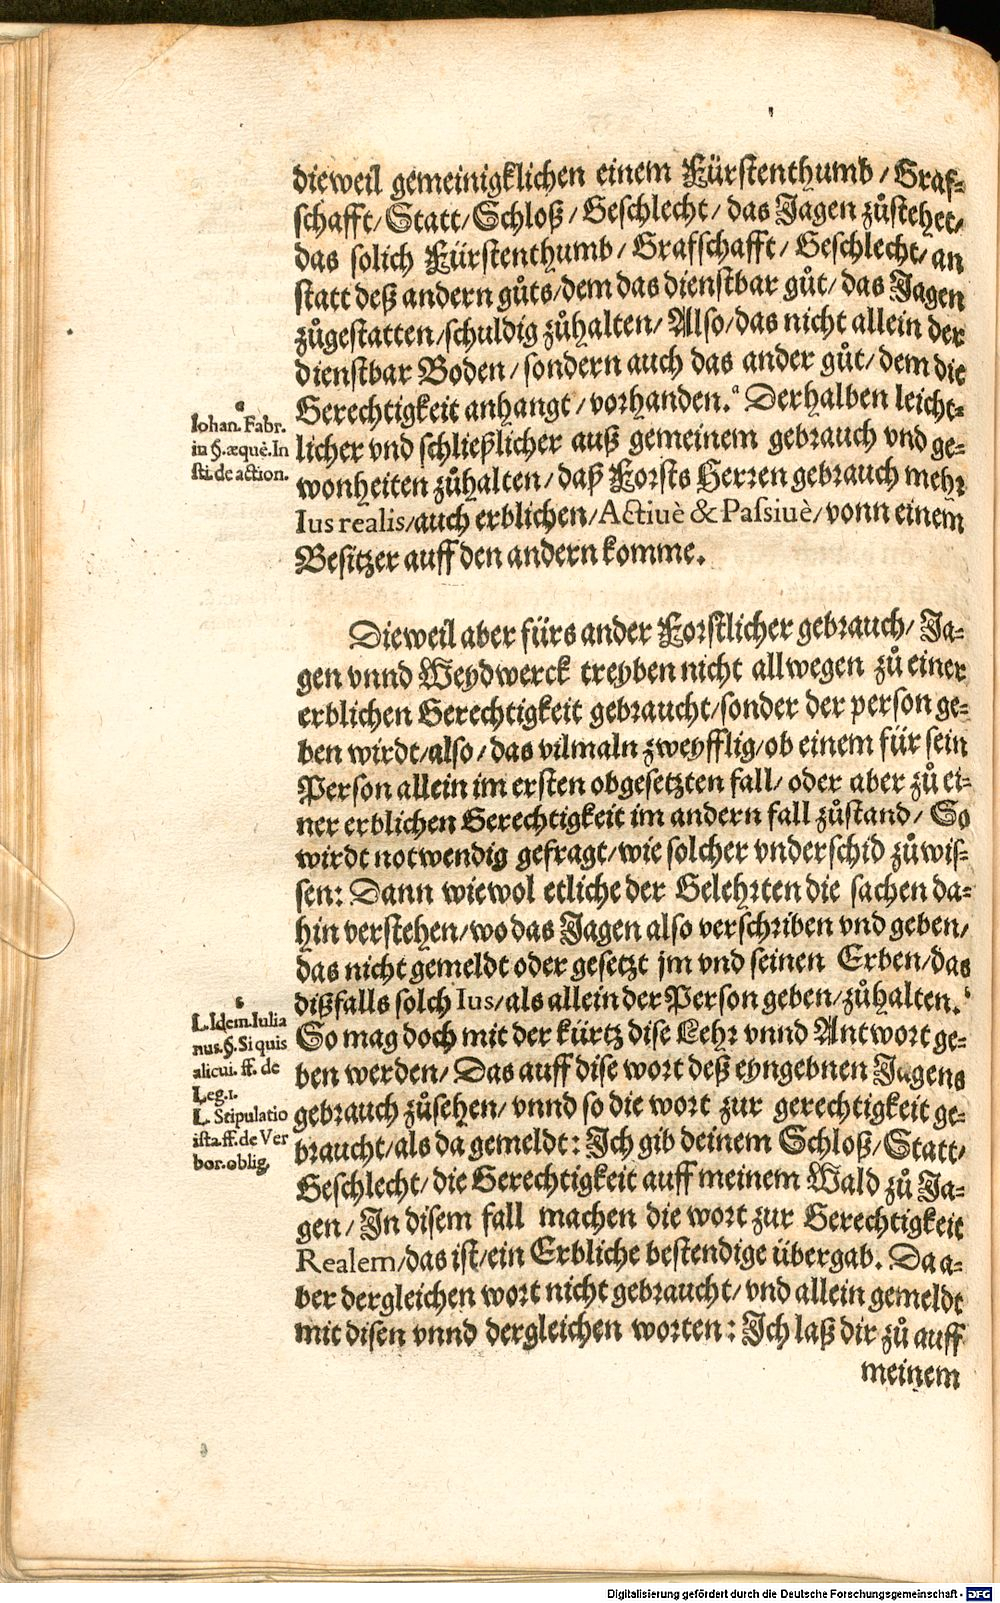 dieweil gemeinigklichen einem Fürstenthumb / Graf-
schafft / Statt / Schloß / Geschlecht / das Jagen zůstehet /
das solich Fürstenthumb / Grafschafft / Geschlecht / an
statt deß andern gůts / dem das dienstbar gůt / das Jagen
zůgestatten / schuldig zůhalten / Also / das nicht allein der
dienstbar Boden / sondern auch das ander gůt / dem die
Gerechtigkeit anhangt / vorhanden.ª Derhalben leicht-
licher vnd schließlicher auß gemeinem gebrauch vnd ge-
wonheiten zůhalten / daß Forsts Herren gebrauch mehr
Ius realis / auch erblichen / Actiuè & Passiuè / vonn einem
Besitzer auff den andern komme.
a
Iohan. Fabr.
in §. æquè. In
sti. de action.
Dieweil aber fürs ander Forstlicher gebrauch / Ja-
gen vnnd Weydwerck treyben nicht allwegen zů einer
erblichen Gerechtigkeit gebraucht / sonder der person ge-
ben wirdt / also / das vilmaln zweyfflig / ob einem für sein
Person allein im ersten obgesetzten fall / oder aber zů ei-
ner erblichen Gerechtigkeit im andern fall zůstand / So
wirdt notwendig gefragt / wie solcher vnderschid zůwis-
sen: Dann wiewol etliche der Gelehrten die sachen da-
hin verstehen / wo das Jagen also verschriben vnd geben /
das nicht gemeldt oder gesetzt jm vnd seinen Erben / das
dißfalls solch Ius / als allein der Person geben / zůhalten.
So mag doch mit der kürtz dise Lehr vnnd Antwort ge-
ben werden / Das auff dise wort deß eyngebnen Jagens
gebrauch zůsehen / vnnd so die wort zur gerechtigkeit ge-
braucht / als da gemeldt: Ich gib deinem Schloß / Statt /
Geschlecht / die Gerechtigkeit auff meinem Wald zů Ja-
gen / In disem fall machen die wort zur Gerechtigkeit
Realem / das ist / ein Erbliche bestendige übergab. Da a-
ber dergleichen wort nicht gebraucht / vnd allein gemeldt
mit disen vnnd dergleichen worten: Ich laß dir zů auff
meinem
L. Idem. Iulia
nus. §. Si quis
alicui. ff. de
Leg. 1.
L. Stipulatio
ista. ff. de Ver
bor. oblig.
Digitalisierung gefördert durch die Deutsche Forschungsgemeinschaft - DFG